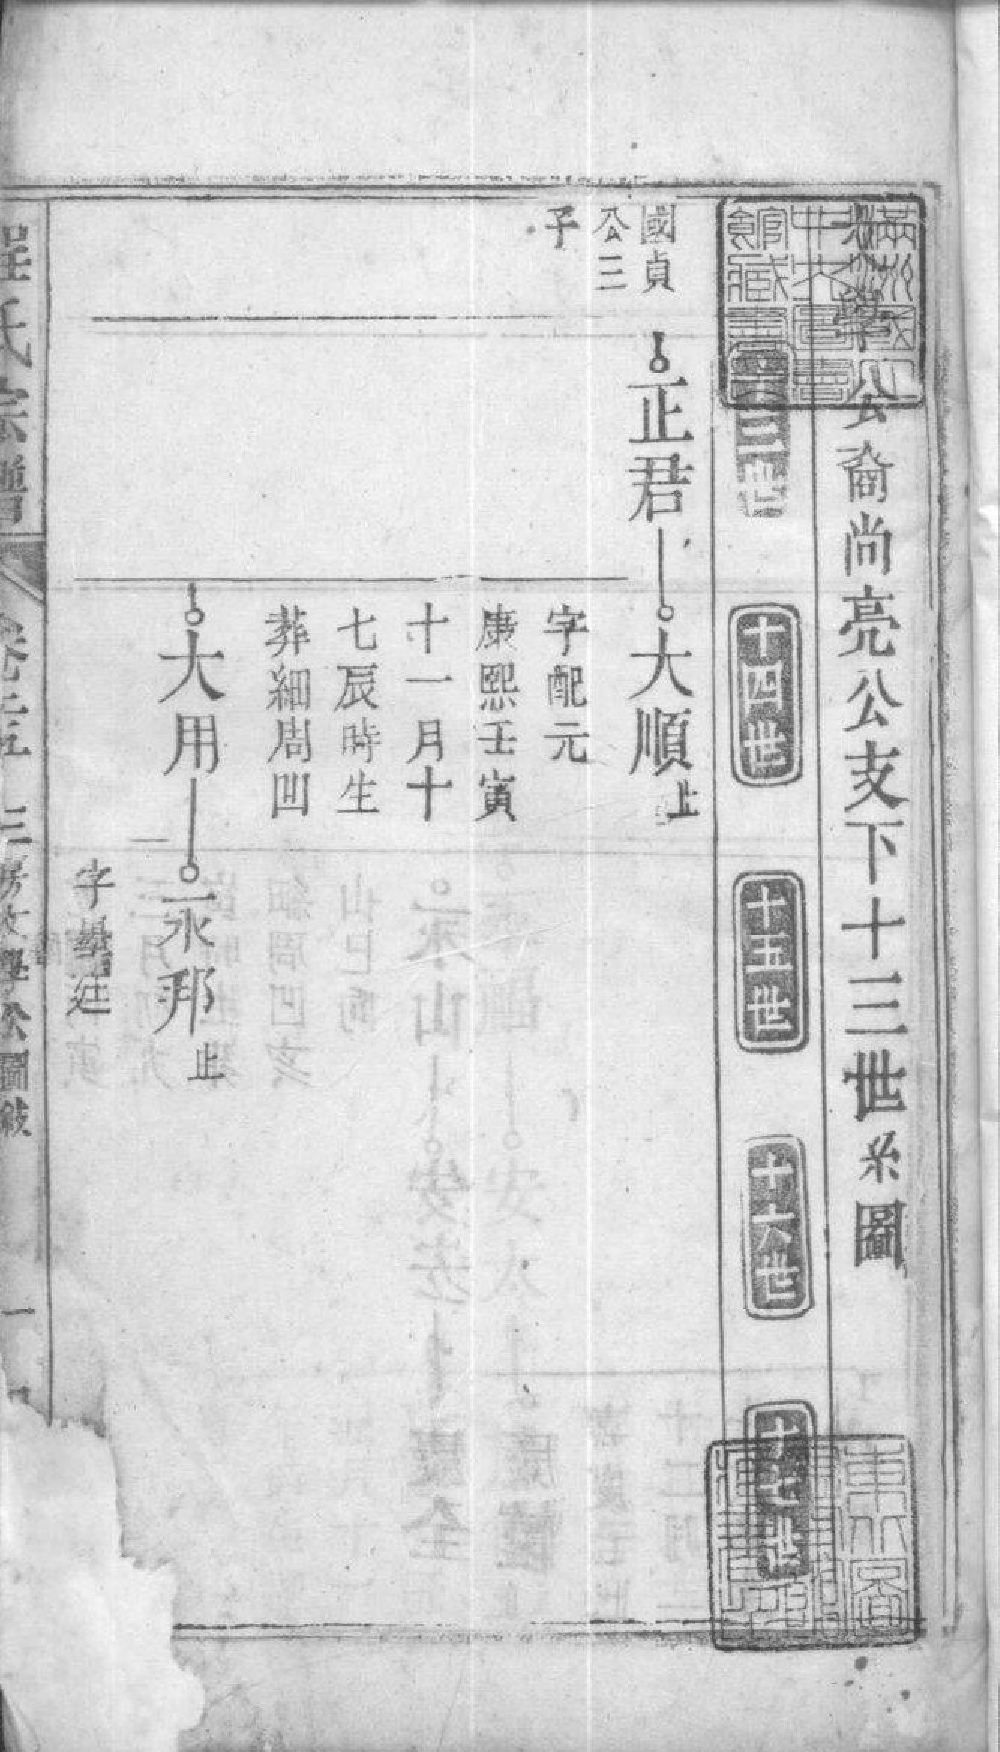 公裔尚亮公支下十三世系圖
十三世
十四世
十五世
十六世
十七世
國貞
公三
子
正君
大順止
字配元
康熙壬寅
十一月十
七辰時生
葬細周凹
大用
永邦止
字學廷
程氏宗譜
卷三五
三房文學公圖
一